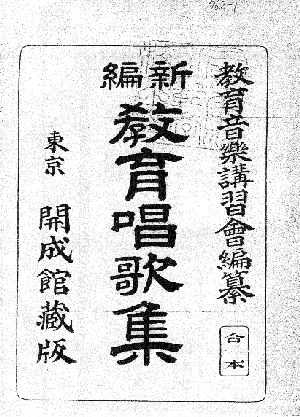 教育音樂講習會編纂
合本
新編
教育唱歌集
東京
開成館藏版